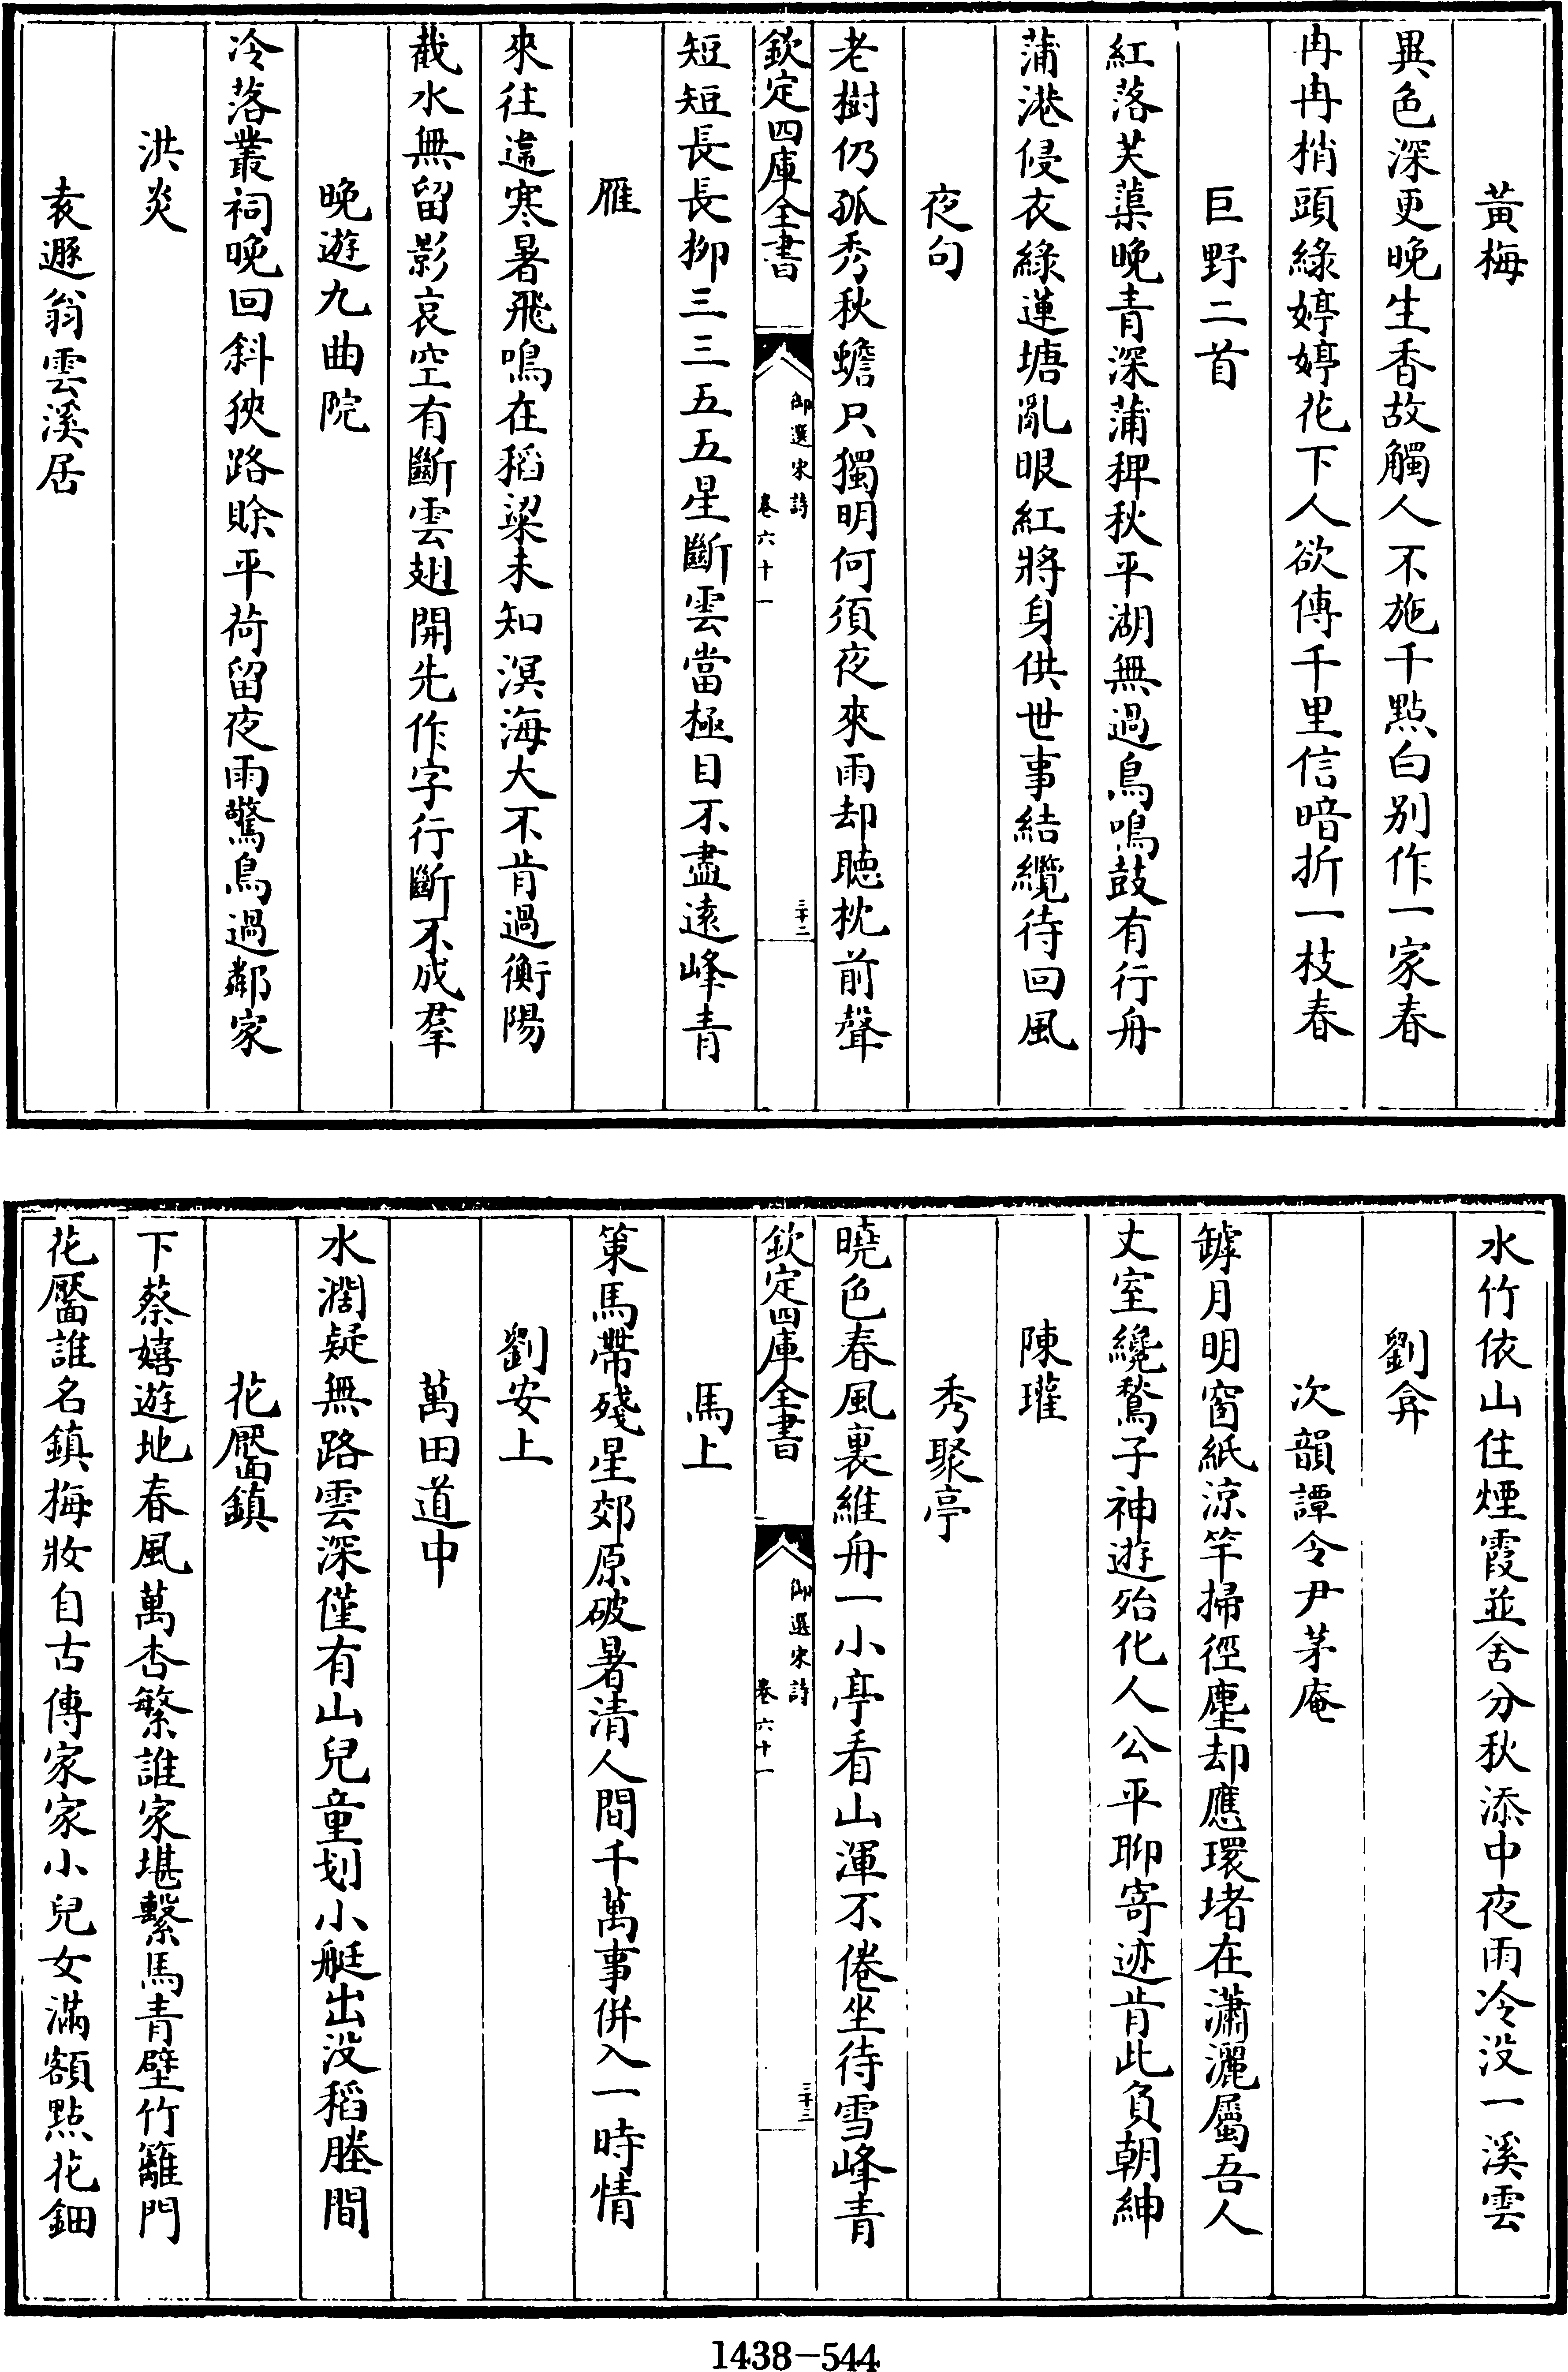 黃梅
異色深更晚生香故觸人不施千點白別作一家春
冉冉梢頭綠婷婷花下人欲傳千里信暗折一枝春
巨野二首
紅落芙蕖晚青深蒲稗秋平湖無過鳥鳴鼓有行舟
蒲港侵衣綠蓮塘亂眼紅將身供世事結纜待回風
夜句
老樹仍孤秀秋蟾只獨明何須夜來雨却聽枕前聲
欽定四庫全書
御選宋詩
卷六十一
三十二
短短長長柳三三五五星斷雲當極目不盡遠峰青
雁
來往違寒暑飛鳴在稻粱未知溟海大不肯過衡陽
截水無留影哀空有斷雲翅開先作字行斷不成羣
晚遊九曲院
冷落叢祠晚回斜狹路賒平荷留夜雨驚鳥過鄰家
洪炎
表遯翁雲溪居
水竹依山住煙霞並舍分秋添中夜雨冷没一溪雲
劉弇
次韻譚令尹茅庵
罅月明窗紙涼竿掃徑塵却應環堵在瀟灑屬吾人
丈室纔鶖子神遊殆化人公平聊寄迹肯此負朝紳
陳瓘
秀聚亭
曉色春風裏維舟一小亭看山渾不倦坐待雪峰青
欽定四庫全書
御選宋詩
卷六十一
三十三
馬上
策馬帶殘星郊原破暑清人間千萬事併入一時情
劉安上
萬田道中
水濶疑無路雲深僅有山兒童划小艇出没稻塍間
花靨鎮
下蔡嬉遊地春風萬杏繁誰家堪繫馬青壁竹籬門
花靨誰名鎮梅妝自古傳家家小兒女滿額點花鈿
1438-544